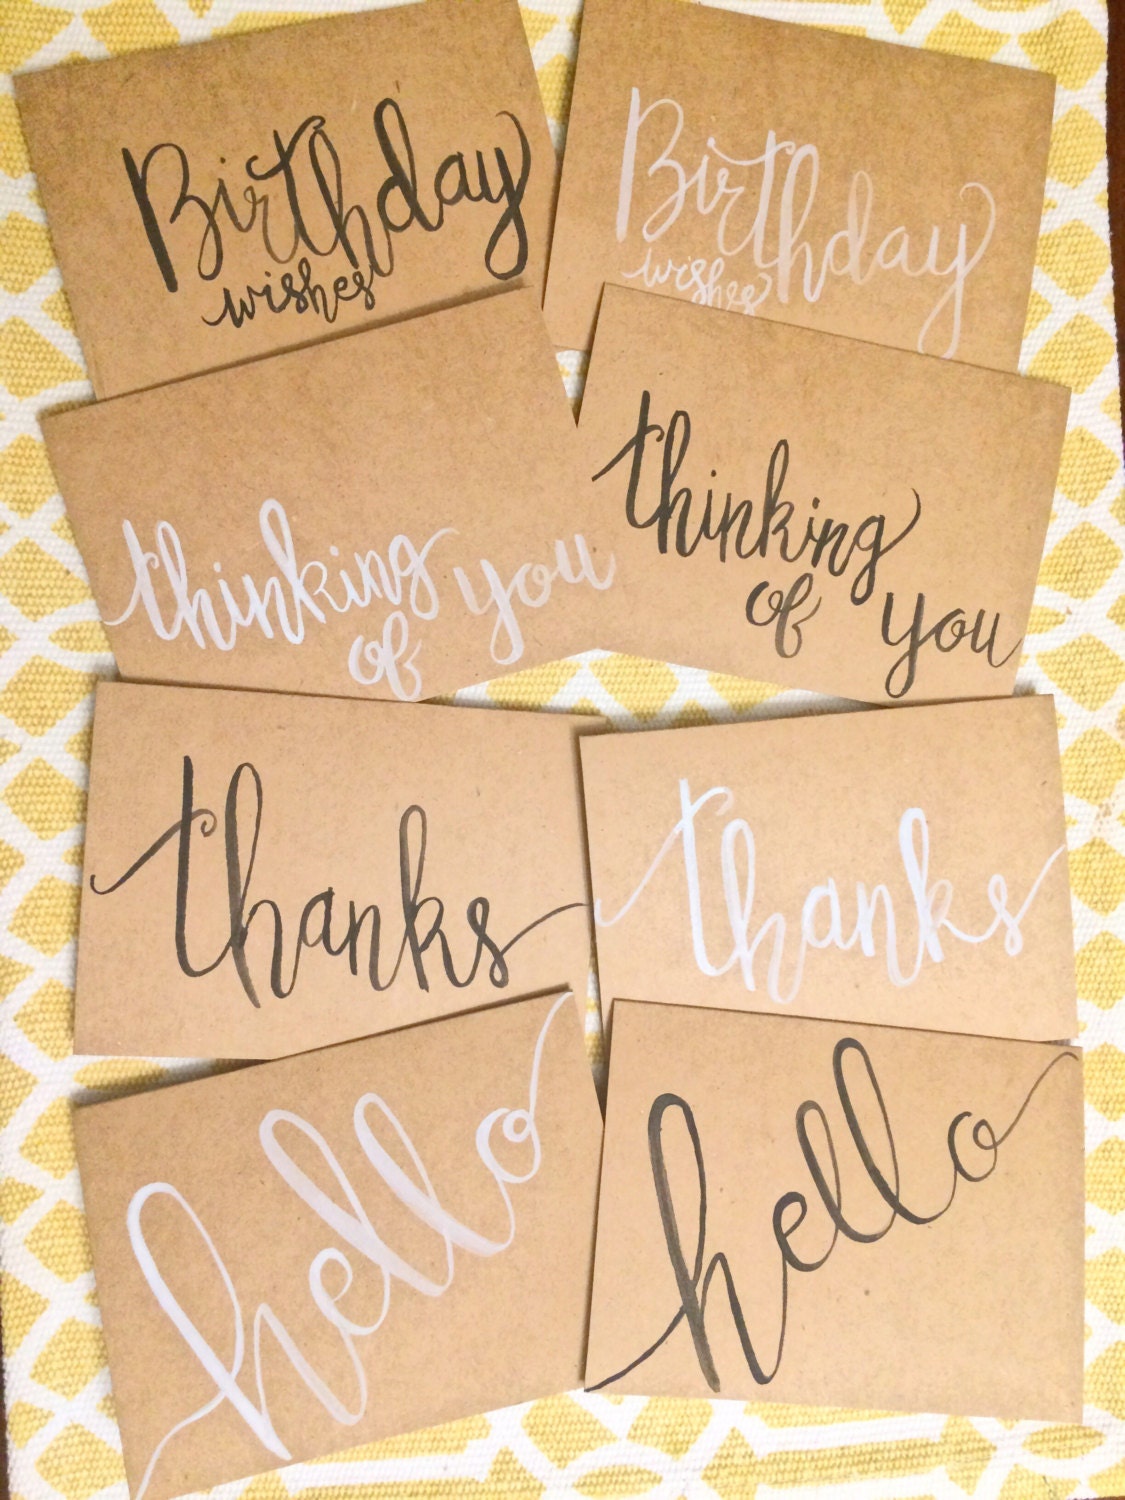 Birthday
wishes
Birthday
wishes
thinking
of you
thinking
of you
thanks
thanks
hello
hello